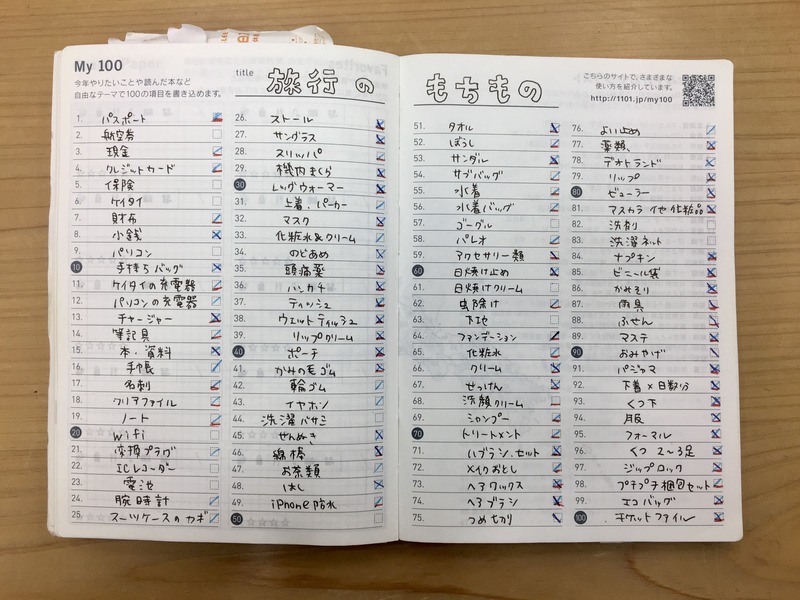 My 100
今年やりたいことや読んだ本など
自由なテーマで100の項目を書き込めます。
title 旅行の
1. パスポート
2. 航空券
3. 現金
4. クレジットカード
5. 保険
6. ケイタイ
7. 財布
8. 小銭
9. パソコン
10 手持ちバッグ
11. ケイタイの充電器
12. パソコンの充電器
13. チャージャー
14. 筆記具
15. 本・資料
16. 手帳
17. 名刺
18. クリアファイル
19. ノート
20 wifi
21. 変換プラグ
22. ICレコーダー
23. 電池
24. 腕時計
25. スーツケースのカギ
26. ストール
27. サングラス
28. スリッパ
29. 機内まくら
30 レッグウォーマー
31. 上着、パーカー
32. マスク
33. 化粧水&クリーム
34. のどあめ
35. 頭痛薬
36. ハンカチ
37. ティッシュ
38. ウェットティッシュ
39. リップクリーム
40 ポーチ
41. かみの毛ゴム
42. 輪ゴム
43. イヤホン
44. 洗濯バサミ
45. せんぬき
46. 綿棒
47. お茶類
48. はし
49. iPhone防水
50
もちもの
こちらのサイトで、さまざまな
使い方を紹介しています。
http://1101.jp/my100
51. タオル
52. ぼうし
53. サンダル
54. サブバッグ
55. 水着
56. 水着バッグ
57. ゴーグル
58. パレオ
59. アクセサリー類
60 日焼け止め
61. 日焼けクリーム
62. 虫除け
63. 下地
64. ファンデーション
65. 化粧水
66. クリーム
67. せっけん
68. 洗顔クリーム
69. シャンプー
70 トリートメント
71. ハブラシ.セット
72. メイクおとし
73. ヘアワックス
74. ヘアブラシ
75. つめ切り
76. よい止め
77. 薬類、
78. デオトランド
79. リップ
80 ビューラー
81. マスカラ他化粧品
82. 洗剤
83. 洗濯ネット
84. ナプキン
85. ビニール袋
86. かみそり
87. 雨具
88. ふせん
89. マステ
90 おみやげ
91. パジャマ
92. 下着×日数分
93. くつ下
94. 服
95. フォーマル
96. くつ 2〜3足
97. ジップロック
98. プチプチ梱包セット
99. エコバッグ
100 チケットファイル